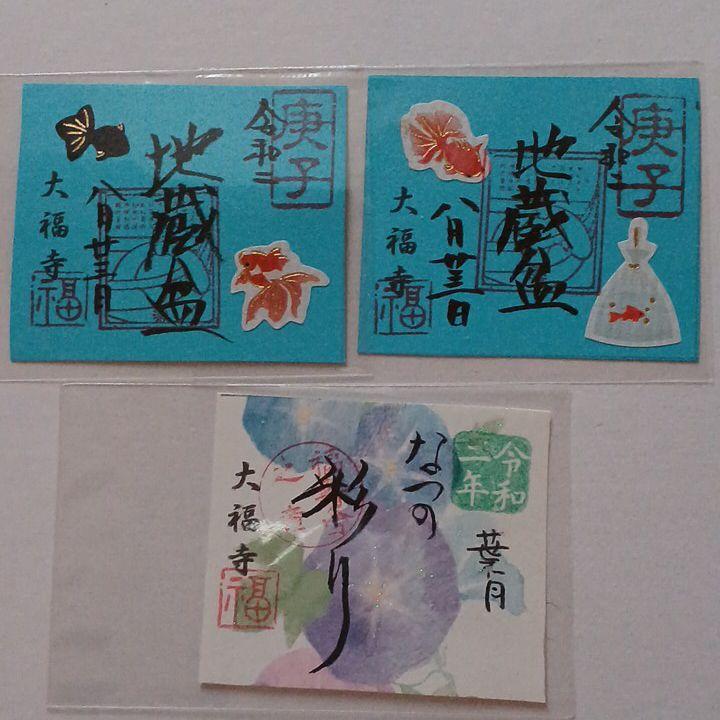 庚子
令和二
地蔵盆
八月廿三日
大福寺
福
庚子
令和二
地蔵盆
八月廿三日
大福寺
福
令和二年
葉月
なつの
彩り
大福寺
福